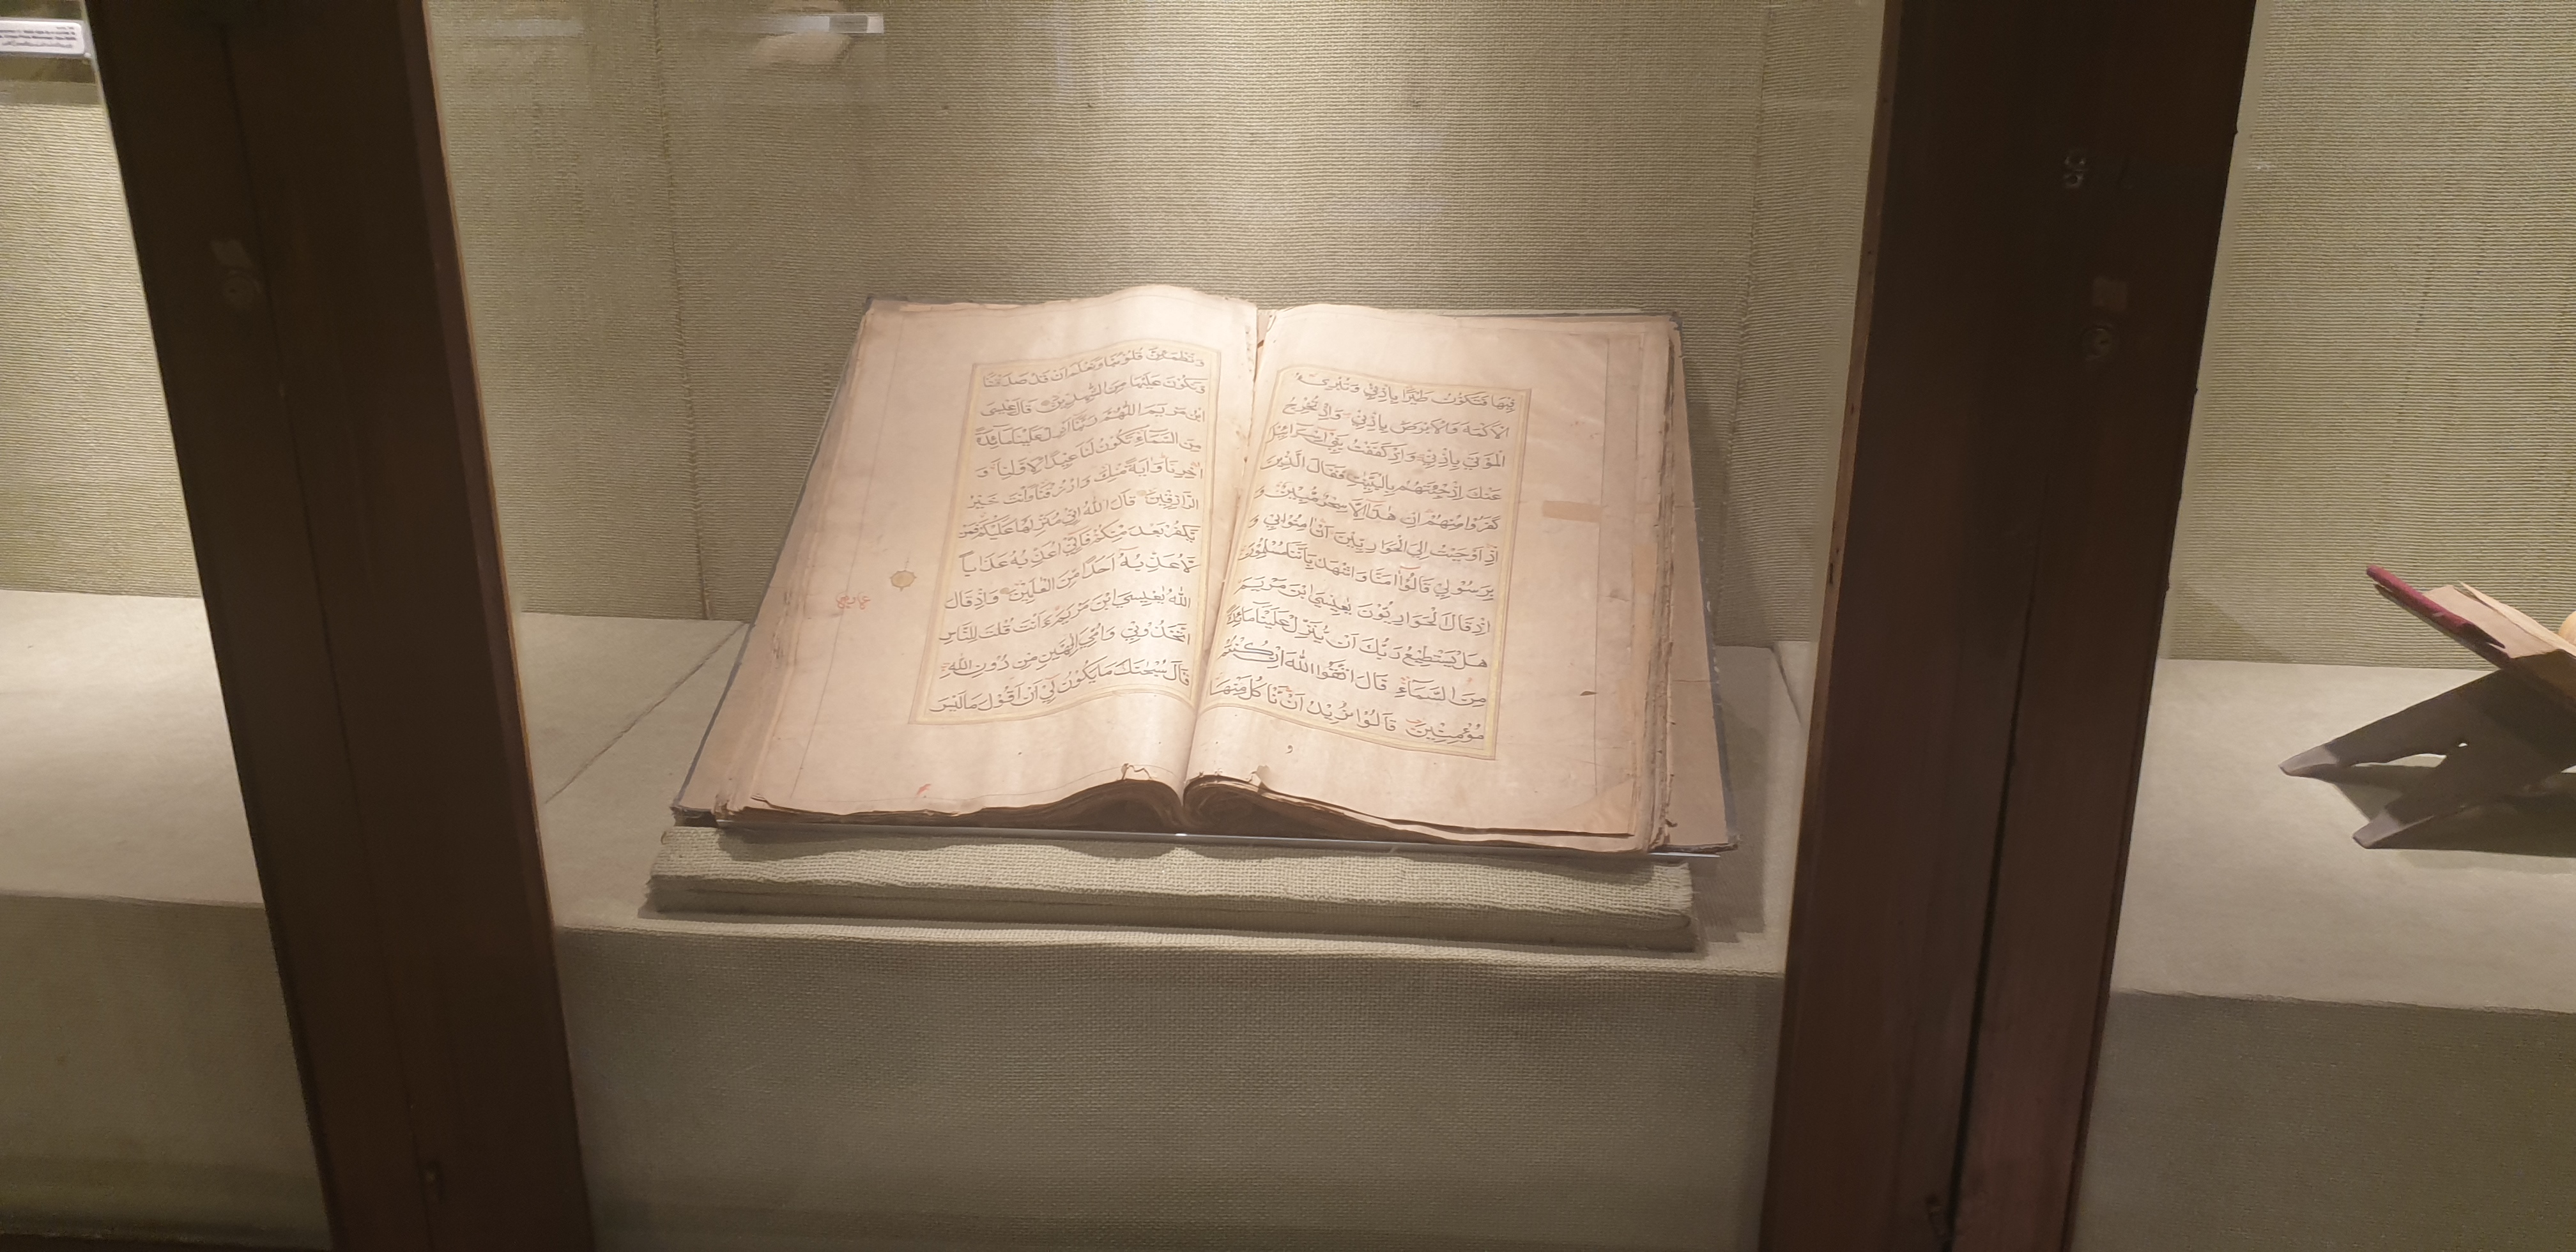 فِيهَا فَتَكُوْنُ طَيْرًا بِاِذْنِيْ وَتُبْرِئُ
الْاَكْمَهَ وَالْاَبْرَصَ بِاِذْنِيْ وَاِذْ تُخْرِجُ
الْمَوْتٰى بِاِذْنِيْ وَاِذْ كَفَفْتُ بَنِيْ اِسْرَآئِيْلَ
عَنْكَ اِذْ جِئْتَهُمْ بِالْبَيِّنٰتِ فَقَالَ الَّذِيْنَ
كَفَرُوْا مِنْهُمْ اِنْ هٰذَا اِلَّا سِحْرٌ مُّبِيْنٌ وَ
اِذْ اَوْحَيْتُ اِلَى الْحَوَارِيّٖنَ اَنْ اٰمِنُوْا بِيْ وَ
بِرَسُوْلِيْ قَالُوْا اٰمَنَّا وَاشْهَدْ بِاَنَّنَا مُسْلِمُوْنَ
اِذْ قَالَ الْحَوَارِيُّوْنَ يٰعِيْسَى ابْنَ مَرْيَمَ
هَلْ يَسْتَطِيْعُ رَبُّكَ اَنْ يُّنَزِّلَ عَلَيْنَا مَآئِدَةً
مِنَ السَّمَآءِ قَالَ اتَّقُوا اللّٰهَ اِنْ كُنْتُمْ
مُّؤْمِنِيْنَ قَالُوْا نُرِيْدُ اَنْ نَّاْكُلَ مِنْهَا
و
وَتَطْمَئِنَّ قُلُوْبُنَا وَنَعْلَمَ اَنْ قَدْ صَدَقْتَنَا
وَنَكُوْنَ عَلَيْهَا مِنَ الشّٰهِدِيْنَ قَالَ عِيْسَى
ابْنُ مَرْيَمَ اللّٰهُمَّ رَبَّنَا اَنْزِلْ عَلَيْنَا مَآئِدَةً
مِنَ السَّمَآءِ تَكُوْنُ لَنَا عِيْدًا لِاَوَّلِنَا وَ
اٰخِرِنَا وَاٰيَةً مِّنْكَ وَارْزُقْنَا وَاَنْتَ خَيْرُ
الرّٰزِقِيْنَ قَالَ اللّٰهُ اِنِّيْ مُنَزِّلُهَا عَلَيْكُمْ فَمَنْ
يَّكْفُرْ بَعْدُ مِنْكُمْ فَاِنِّيْ اُعَذِّبُهٗ عَذَابًا
لَّا اُعَذِّبُهٗ اَحَدًا مِّنَ الْعٰلَمِيْنَ وَاِذْ قَالَ
اللّٰهُ يٰعِيْسَى ابْنَ مَرْيَمَ ءَاَنْتَ قُلْتَ لِلنَّاسِ
اتَّخِذُوْنِيْ وَاُمِّيَ اِلٰهَيْنِ مِنْ دُوْنِ اللّٰهِ
قَالَ سُبْحٰنَكَ مَا يَكُوْنُ لِيْ اَنْ اَقُوْلَ مَا لَيْسَ